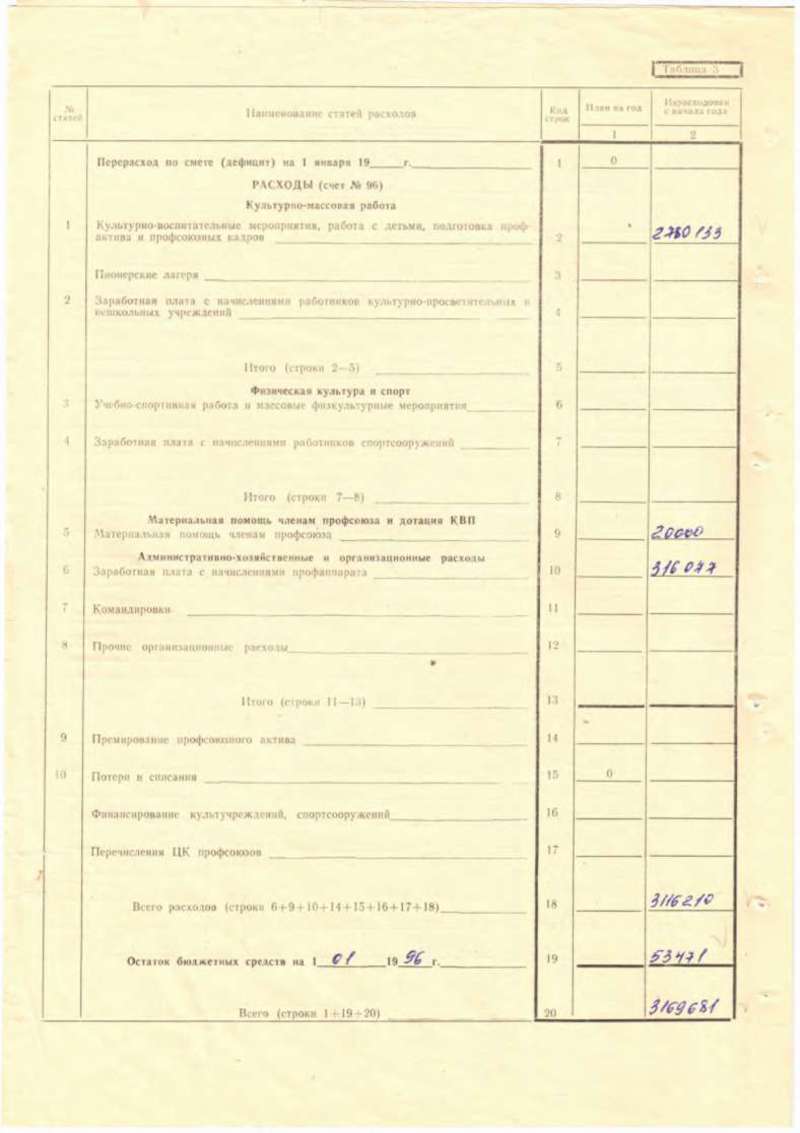 Таблица 3
№ статей
Наименование статей расходов
Код строк
План на год
Израсходован с начала года
1 2
Перерасход по смете (дефицит) на 1 января 19 г. 1 0
РАСХОДЫ (счет № 96)
Культурно-массовая работа
1 Культурно-воспитательные мероприятия, работа с детьми, подготовка проф-
актива и профсоюзных кадров 2 2780133
Пионерские лагеря 3
2 Заработная плата с начислениями работников культурно-просветительных и
внешкольных учреждений 4
Итого (строки 2—5) 5
Физическая культура и спорт
3 Учебно-спортивная работа и массовые физкультурные мероприятия 6
4 Заработная плата с начислениями работников спортсооружений 7
Итого (строки 7—8) 8
Материальная помощь членам профсоюза и дотация КВП
5 Материальная помощь членам профсоюза 9 20000
Административно-хозяйственные и организационные расходы
6 Заработная плата с начислениями профаппарата 10 316077
7 Командировки 11
8 Прочие организационные расходы 12
Итого (строки 11—13) 13
9 Премирование профсоюзного актива 14
10 Потери и списания 15 0
Финансирование культучреждений, спортсооружений 16
Перечисления ЦК профсоюзов 17
Всего расходов (строки 6+9+10+14+15+16+17+18) 18 3116210
Остаток бюджетных средств на 1 01 19 96 г. 19 53471
Всего (строки 1+19+20) 20 3169681